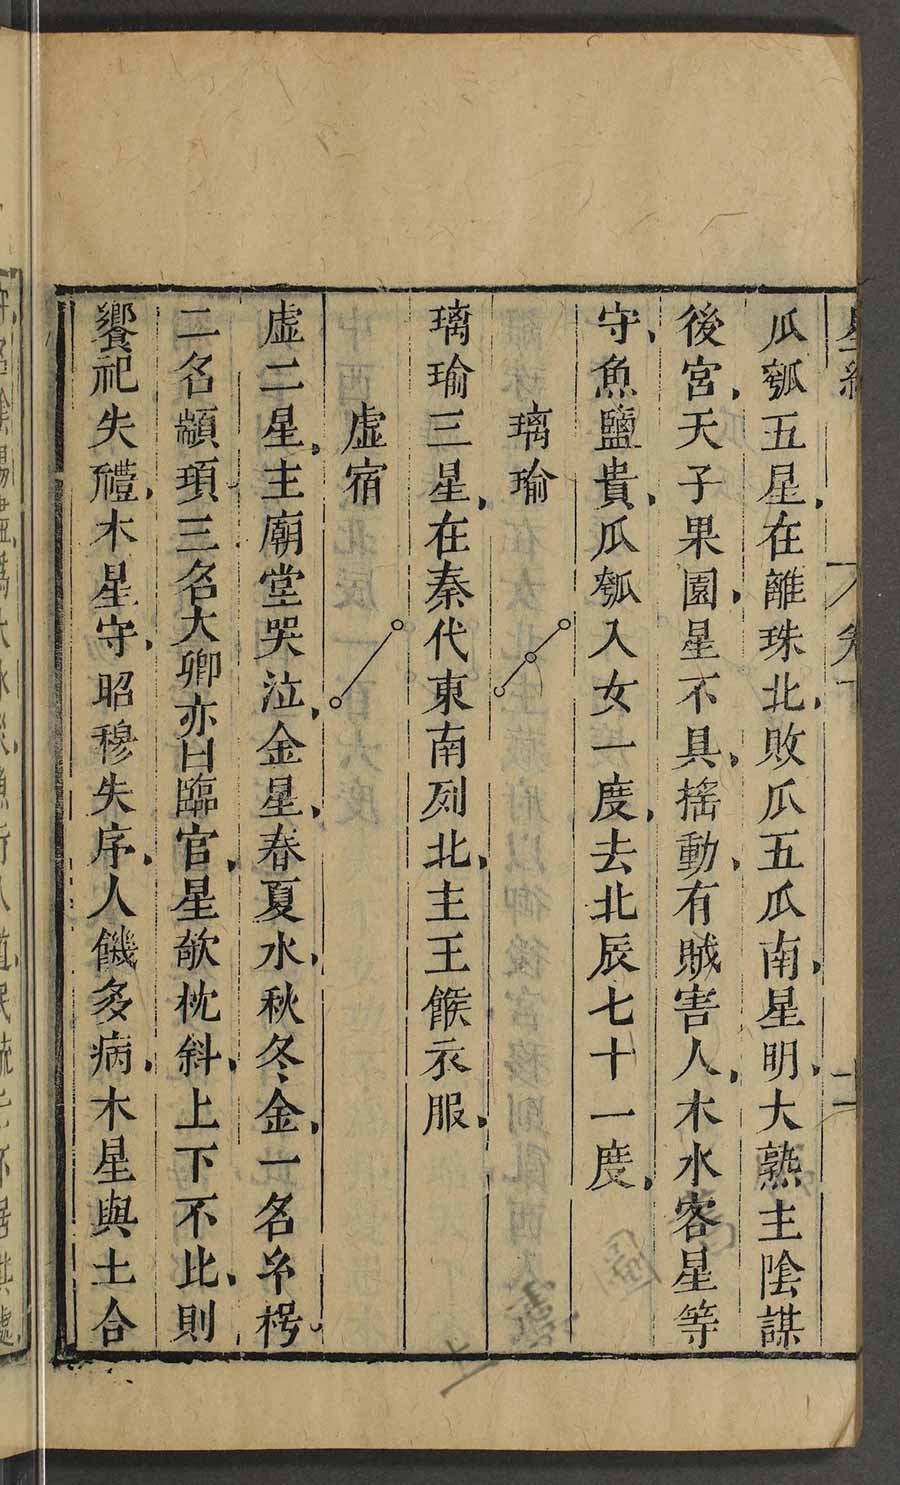 星經 卷下 二
瓜瓠五星在離珠北敗瓜五瓜南星明大熟主陰謀
後宮天子果園星不具搖動有賊害人木水客星等
守魚鹽貴瓜瓠入女一度去北辰七十一度
璃瑜
璃瑜三星在秦代東南列北主王餱衣服
虛宿
虛二星主廟堂哭泣金星春夏水秋冬金一名𤣥枵
二名顓頊三名大卿亦曰臨官星欹枕斜上下不比則
饗祀失禮木星守昭穆失序人饑多病木星與土合